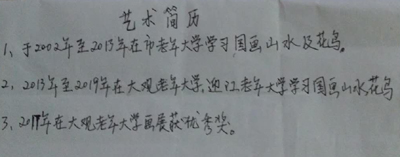 艺术简历
1、于2002年至2013年在市老年大学学习国画山水及花鸟。
2、2013年至2019年在大观老年大学、迎江老年大学学习国画山水花鸟
3、2017年在大观老年大学画展获优秀奖。